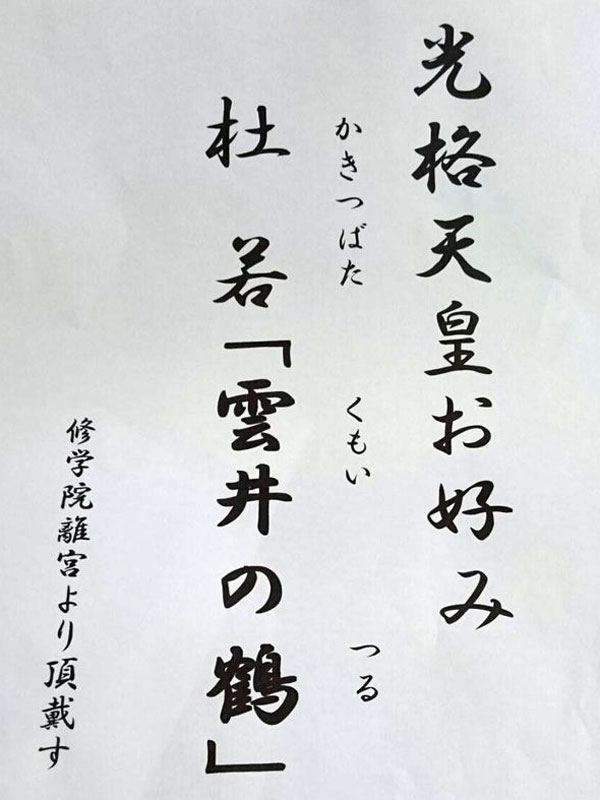 光格天皇お好み
かきつばた くもい つる
杜若「雲井の鶴」
修学院離宮より頂戴す